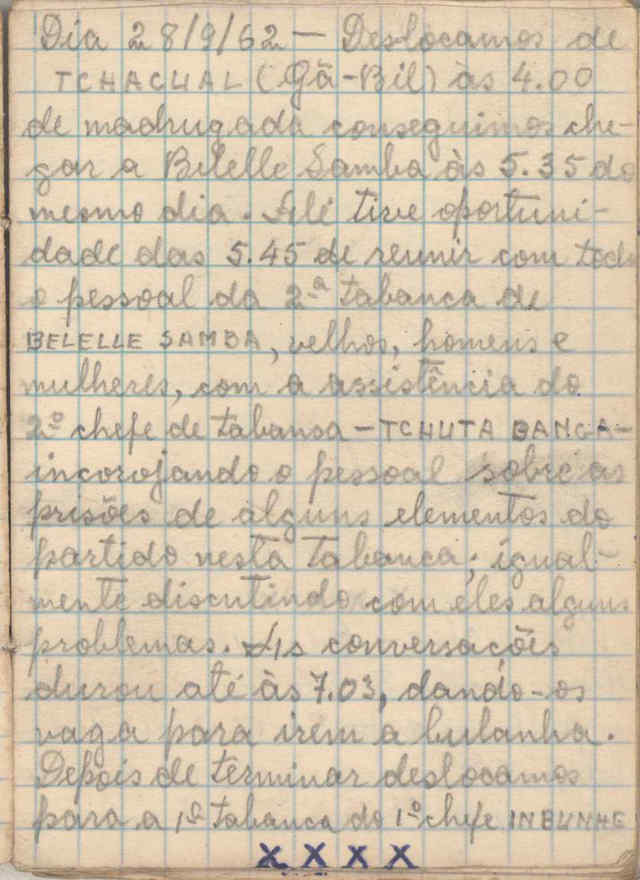 Dia 28/9/62 — Deslocamos de
TCHACUAL (Gã-Bil) às 4.00
de madrugada conseguimos che-
gar a Belelle Samba às 5.35 do
mesmo dia. Ali tive oportuni-
dade das 5.45 de reunir com todo
o pessoal da 2ª tabanca de
BELELLE SAMBA, velhos, homens e
mulheres, com a assistência do
2º chefe de tabanca – TCHUTA BANGA –
incorojando o pessoal sobre as
prisões de alguns elementos do
partido nesta tabanca; igual-
mente discutindo com eles alguns
problemas. As conversações
durou até às 7.03, dando-os
vaga para irem a bulanha.
Depois de terminar deslocamos
para a 1ª tabanca do 1º chefe INBUNHE
X X X X